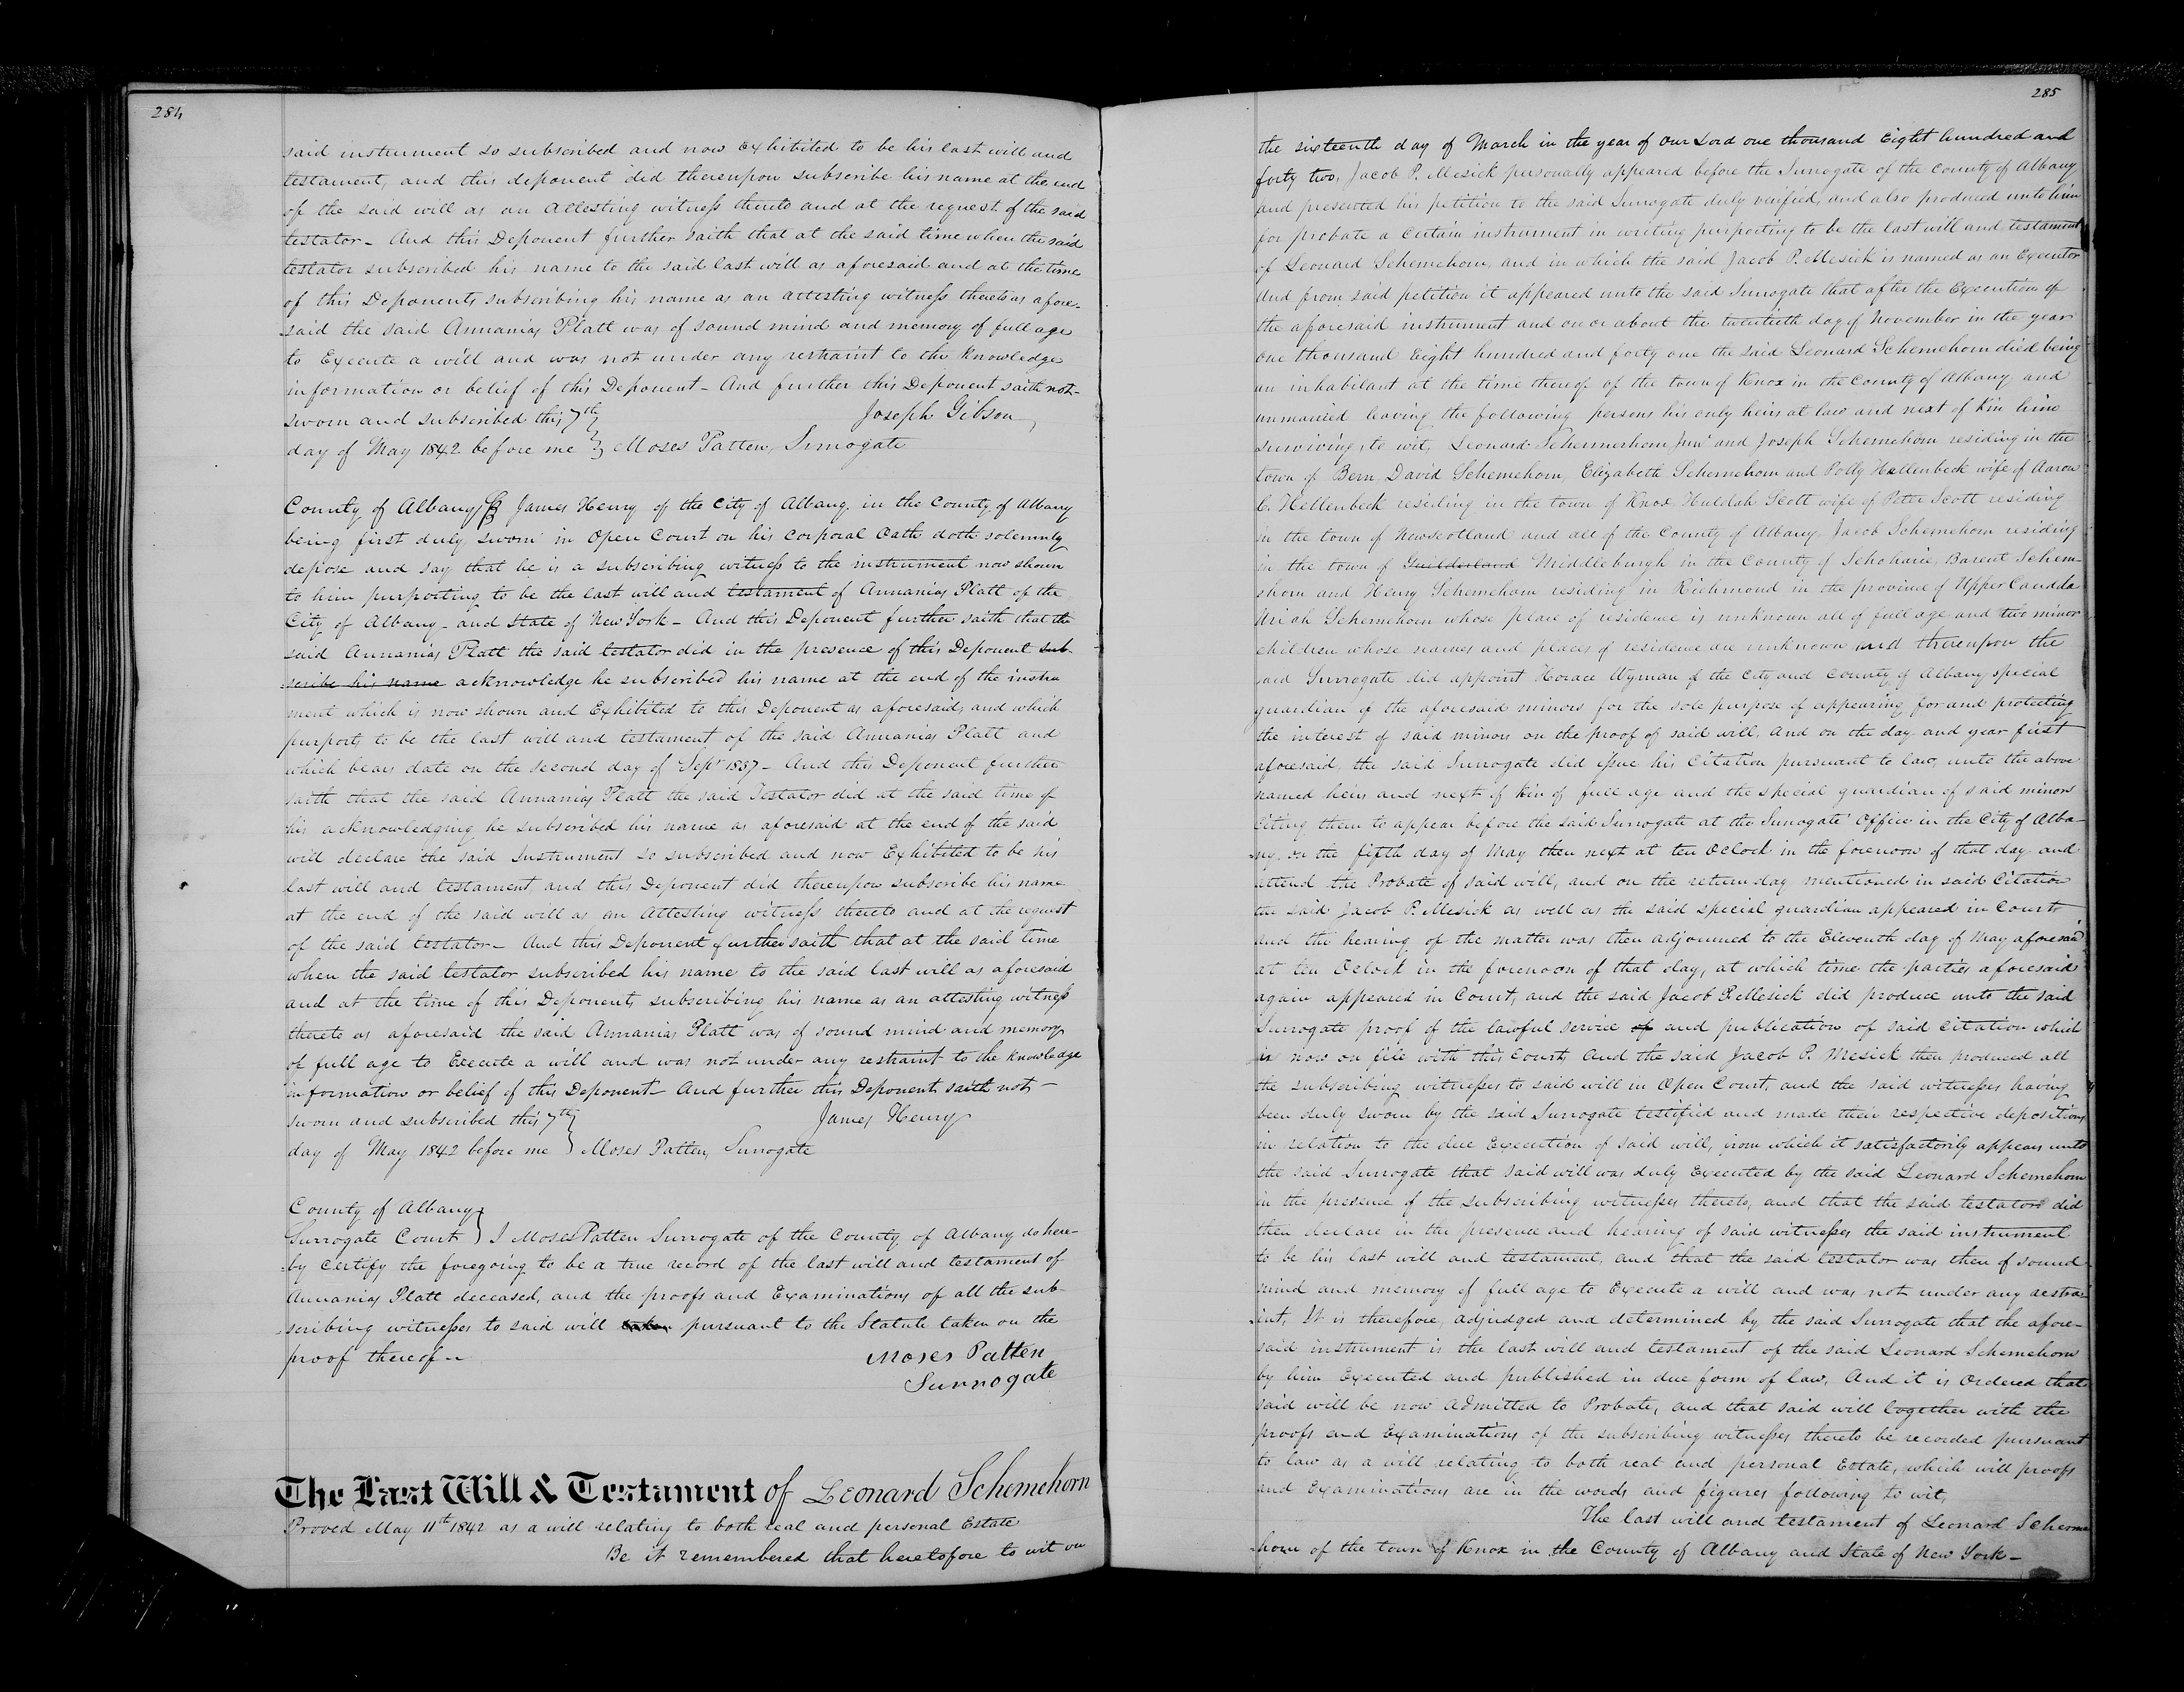 284
said instrument so subscribed and now Exhibited to be his last will and
testament, and this deponent did thereupon subscribe his name at the end
of the said will as an Attesting witness thereto and at the request of the said
testator - And this Deponent further saith that at the said time when the said
testator subscribed his name to the said last will as aforesaid and at the time
of this Deponents subscribing his name as an attesting witness thereto as afore-
said the said Annanias Platt was of sound mind and memory of full age
to Execute a will and was not under any restraint to the knowledge
information or belief of this Deponent - And further this Deponent saith not -
sworn and subscribed this 7th } Joseph Gibson
day of May 1842 before me } Moses Patten, Surrogate
County of Albany ss James Henry of the City of Albany in the County of Albany
being first duly sworn in Open Court on his Corporal Oath doth solemnly
depose and say that he is a subscribing witness to the instrument now shown
to him purporting to be the last will and testament of Annanias Platt of the
City of Albany and State of New York - And this Deponent further saith that the
said Annanias Platt the said testator did in the presence of this Deponent sub-
scribe his name acknowledge he subscribed his name at the end of the instru
ment which is now shown and Exhibited to this Deponent as aforesaid, and which
purports to be the last will and testament of the said Annanias Platt and
which bears date on the second day of Sept 1837 - And this Deponent further
saith that the said Annanias Platt the said Testator did at the said time of
his acknowledging he subscribed his name as aforesaid at the end of the said
will declare the said Instrument so subscribed and now Exhibited to be his
last will and testament, and this Deponent did thereupon subscribe his name
at the end of the said will as an Attesting witness thereto and at the request
of the said testator - And this Deponent further saith that at the said time
when the said testator subscribed his name to the said last will as aforesaid
and at the time of this Deponents subscribing his name as an attesting witness
thereto as aforesaid the said Annanias Platt was of sound mind and memory
of full age to Execute a will and was not under any restraint to the knowledge
information or belief of this Deponent - And further this Deponent saith not -
sworn and subscribed this 7th } James Henry
day of May 1842 before me } Moses Patten, Surrogate
County of Albany }
Surrogate Court } I Moses Patten Surrogate of the County of Albany do here-
-by Certify the foregoing to be a true record of the last will and testament of
Annanias Platt deceased, and the proofs and Examinations of all the sub-
-scribing witnesses to said will taken pursuant to the Statute taken on the
proof thereof -
Moses Patten
Surrogate
The Last Will & Testament of Leonard Schemehorn
Proved May 11th 1842 as a will relating to both real and personal Estate
Be it remembered that heretofore to wit on
285
the sixteenth day of March in the year of Our Lord one thousand Eight hundred and
forty two, Jacob P. Mesick personally appeared before the Surrogate of the County of Albany
and presented his petition to the said Surrogate duly verified, and also produced unto him
for probate a Certain instrument in writing purporting to be the last will and testament
of Leonard Schemehorn, and in which the said Jacob P. Mesick is named as an Executor
And from said petition it appeared unto the said Surrogate that after the Execution of
the aforesaid instrument and on or about the twentieth day of November in the year
one thousand Eight hundred and forty one the said Leonard Schemehorn died being
an inhabitant at the time thereof of the town of Knox in the County of Albany and
unmarried leaving the following persons his only heirs at law and next of Kin him
surviving, to wit, Leonard Schermerhorn Junr and Joseph Schemehorn residing in the
town of Bern David Schemehorn, Elizabeth Schemehorn and Polly Hallenbeck wife of Aaron
C. Hellenbeck residing in the town of Knox Huldah Scott wife of Peter Scott residing
in the town of Newscotland and all of the County of Albany, Jacob Schemehorn residing
in the town of Guilderland Middleburgh in the County of Schoharie, Barent Schem-
ehorn and Henry Schemehorn residing in Richmond in the province of Upper Candda
Uriah Schemehorn whose place of residence is unknown all of full age and two minor
children whose names and places of residence are unknown and thereupon the
said Surrogate did appoint Horace Wyman of the City and County of Albany special
guardian of the aforesaid minors for the sole purpose of appearing for and protecting
the interest of said minors on the proof of said will, And on the day and year first
aforesaid, the said Surrogate did issue his Citation pursuant to law, unto the above
named heirs and next of kin of full age and the special guardian of said minors
Citing them to appear before the said Surrogate at the Surrogate' Office in the City of Alba-
-ny on the fifth day of May then next at ten Oclock in the forenoon of that day and
attend the Probate of said will, and on the return day mentioned in said Citation
the said Jacob P. Mesick as well as the said special guardian appeared in Court
and the hearing of the matter was then adjourned to the Eleventh day of May aforesaid
at ten Oclock in the forenoon of that day, at which time the parties aforesaid
again appeared in Court, and the said Jacob P. Mesick did produce unto the said
Surrogate proof of the lawful service of and publication of said Citation which
is now on file with this Court, And the said Jacob P. Mesick then produced all
the subscribing witnesses to said will in Open Court, and the said witnesses having
been duly sworn by the said Surrogate testified and made their respective depositions
in relation to the due Execution of said will, from which it satisfactorily appears unto
the said Surrogate that said will was duly Executed by the said Leonard Schemehorn
in the presence of the subscribing witnesses thereto, and that the said testator did
then declare in the presence and hearing of said witnesses the said instrument
to be his last will and testament, and that the said testator was then of sound
mind and memory of full age to Execute a will and was not under any restra-
-int, It is therefore, adjudged and determined by the said Surrogate that the afore-
said instrument is the last will and testament of the said Leonard Schemehorn
by him Executed and published in due form of law, And it is Ordered that
said will be now Admitted to Probate, and that said will together with the
proofs and Examinations of the subscribing witnesses thereto be recorded pursuant
to law as a will relating to both real and personal Estate, which will proofs
and Examinations are in the words and figures following to wit,
The last will and testament of Leonard Scherme
-horn of the town of Knox in the County of Albany and State of New York -